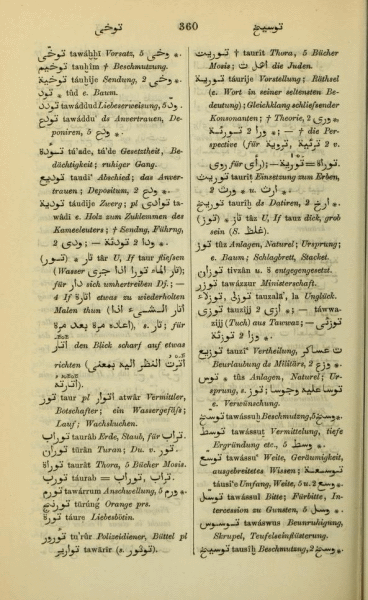 توخى
360
توسيخ
توخّى tawáḫḫî Vorsatz, 5 وخى *.
توخيم tauḫîm † Beschmutzung.
توخية tauḫîje Sendung, 2 وخى *.
تود * tûd e. Baum.
تودد tawáddud Liebeserweisung, 5 ود *.
تودع tawáddu' ds Anvertrauen, De-
poniren, 5 ودع *.
تودة tú'ade, tú'de Gesetztheit, Be-
dächtigkeit; ruhiger Gang.
توديع taudî' Abschied; das Anver-
trauen; Depositum, 2 ودع *.
تودية táudije Zwerg; pl توادى ta-
wâdî e. Holz zum Zuklemmen des
Kameelenters; † Sendng, Führng,
2 ودى; — تودئة 2 ودا *.
(تسور) تار * târ U, If taur fliefsen
(Wasser تار الماء اذا جرى);
für دار sich umhertreiben Df.; —
4 If اتارة etwas zu wiederholten
Malen thun (اتار الشىء اذا
اعاده مرة بعد مرة), s. تار; für
اتار den Blick scharf auf etwas
richten (اترت النظر اليه بمعنى
اتارته).
تور taur pl اتوار atwâr Vermittler,
Botschafter; ein Wassergefäfs;
Lauf; Wachskuchen.
توراب taurâb Erde, Staub, für تراب.
توران tûrân Turan; Du. v. تور.
توراة taurât Thora, 5 Bücher Mosis.
تورب táurab = توراب, تراب.
تورم tawárrum Anschwellung, 5 ورم *.
تورنج túrúng Orange prs.
تورة táure Liebesbötin.
تورور tu'rûr Polizeidiener, Büttel pl
توارير tawârîr (s. توثور).
توريت † taurît Thora, 5 Bücher
Mosis; اهل ت die Juden.
تورية táurije Vorstellung; Räthsel
(e. Wort in seiner seltensten Be-
deutung); Gleichklang schliefsender
Konsonanten; † Theorie, 2 ورى *.
تورئة 2 ورا *; — † die Per-
spective (für تروية, 2 ترئية v.
روى für رأى); — تورية = توراة.
توريث taurît Einsetzung zum Erben,
2 ورث * u. ارث *.
توريخ taurîḫ ds Datiren, 2 ارخ *.
(توز) تاز * tâz U, If tauz dick, grob
sein (S. غلظ).
توز tûz Anlagen, Naturel; Ursprung;
e. Baum; Schlagbrett, Stachet.
توزان tîvzân u. § entgegengesetzt.
توزر tawázzur Ministerschaft.
توزلاء, توزلى tauzalâ', la Unglück.
توزى tauzijj 2 ازى *; — táwwa-
zijj (Tuch) aus Tawwaz; — توزئة
2 وزا *.
توزيع tauzî' Vertheilung, ت عساكر
Beurlaubung ds Militärs, 2 وزع *.
توس * tûs Anlagen, Naturel; Ur-
sprung, s. توز; توسا عليه وجوسا
e. Verwünschung.
توسخ tawássuḫ Beschmutzng, 5 وسخ *.
توسط tawássuṭ Vermittelung, tiefe
Ergründung etc., 5 وسط *.
توسع tawássu' Weite, Geräumigkeit,
ausgebreitetes Wissen; توسعة
táusi'e Umfang, Weite, 5 u. 2 وسع *.
توسل tawássul Bitte; Fürbitte, In-
tercession zu Gunsten, 5 وسل *.
توسوس tawáswus Beunruhignng,
Skrupel, Teufelseinflüsterung.
توسيخ tausîḫ Beschmutzng, 2 وسخ *.